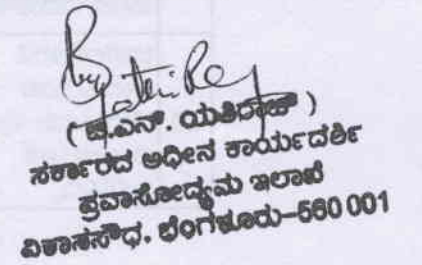 (ಟಿ.ಎನ್. ಯತಿರಾಜ್)
ಸರ್ಕಾರದ ಅಧೀನ ಕಾರ್ಯದರ್ಶಿ
ಪ್ರವಾಸೋದ್ಯಮ ಇಲಾಖೆ
ವಿಕಾಸಸೌಧ, ಬೆಂಗಳೂರು-560 001